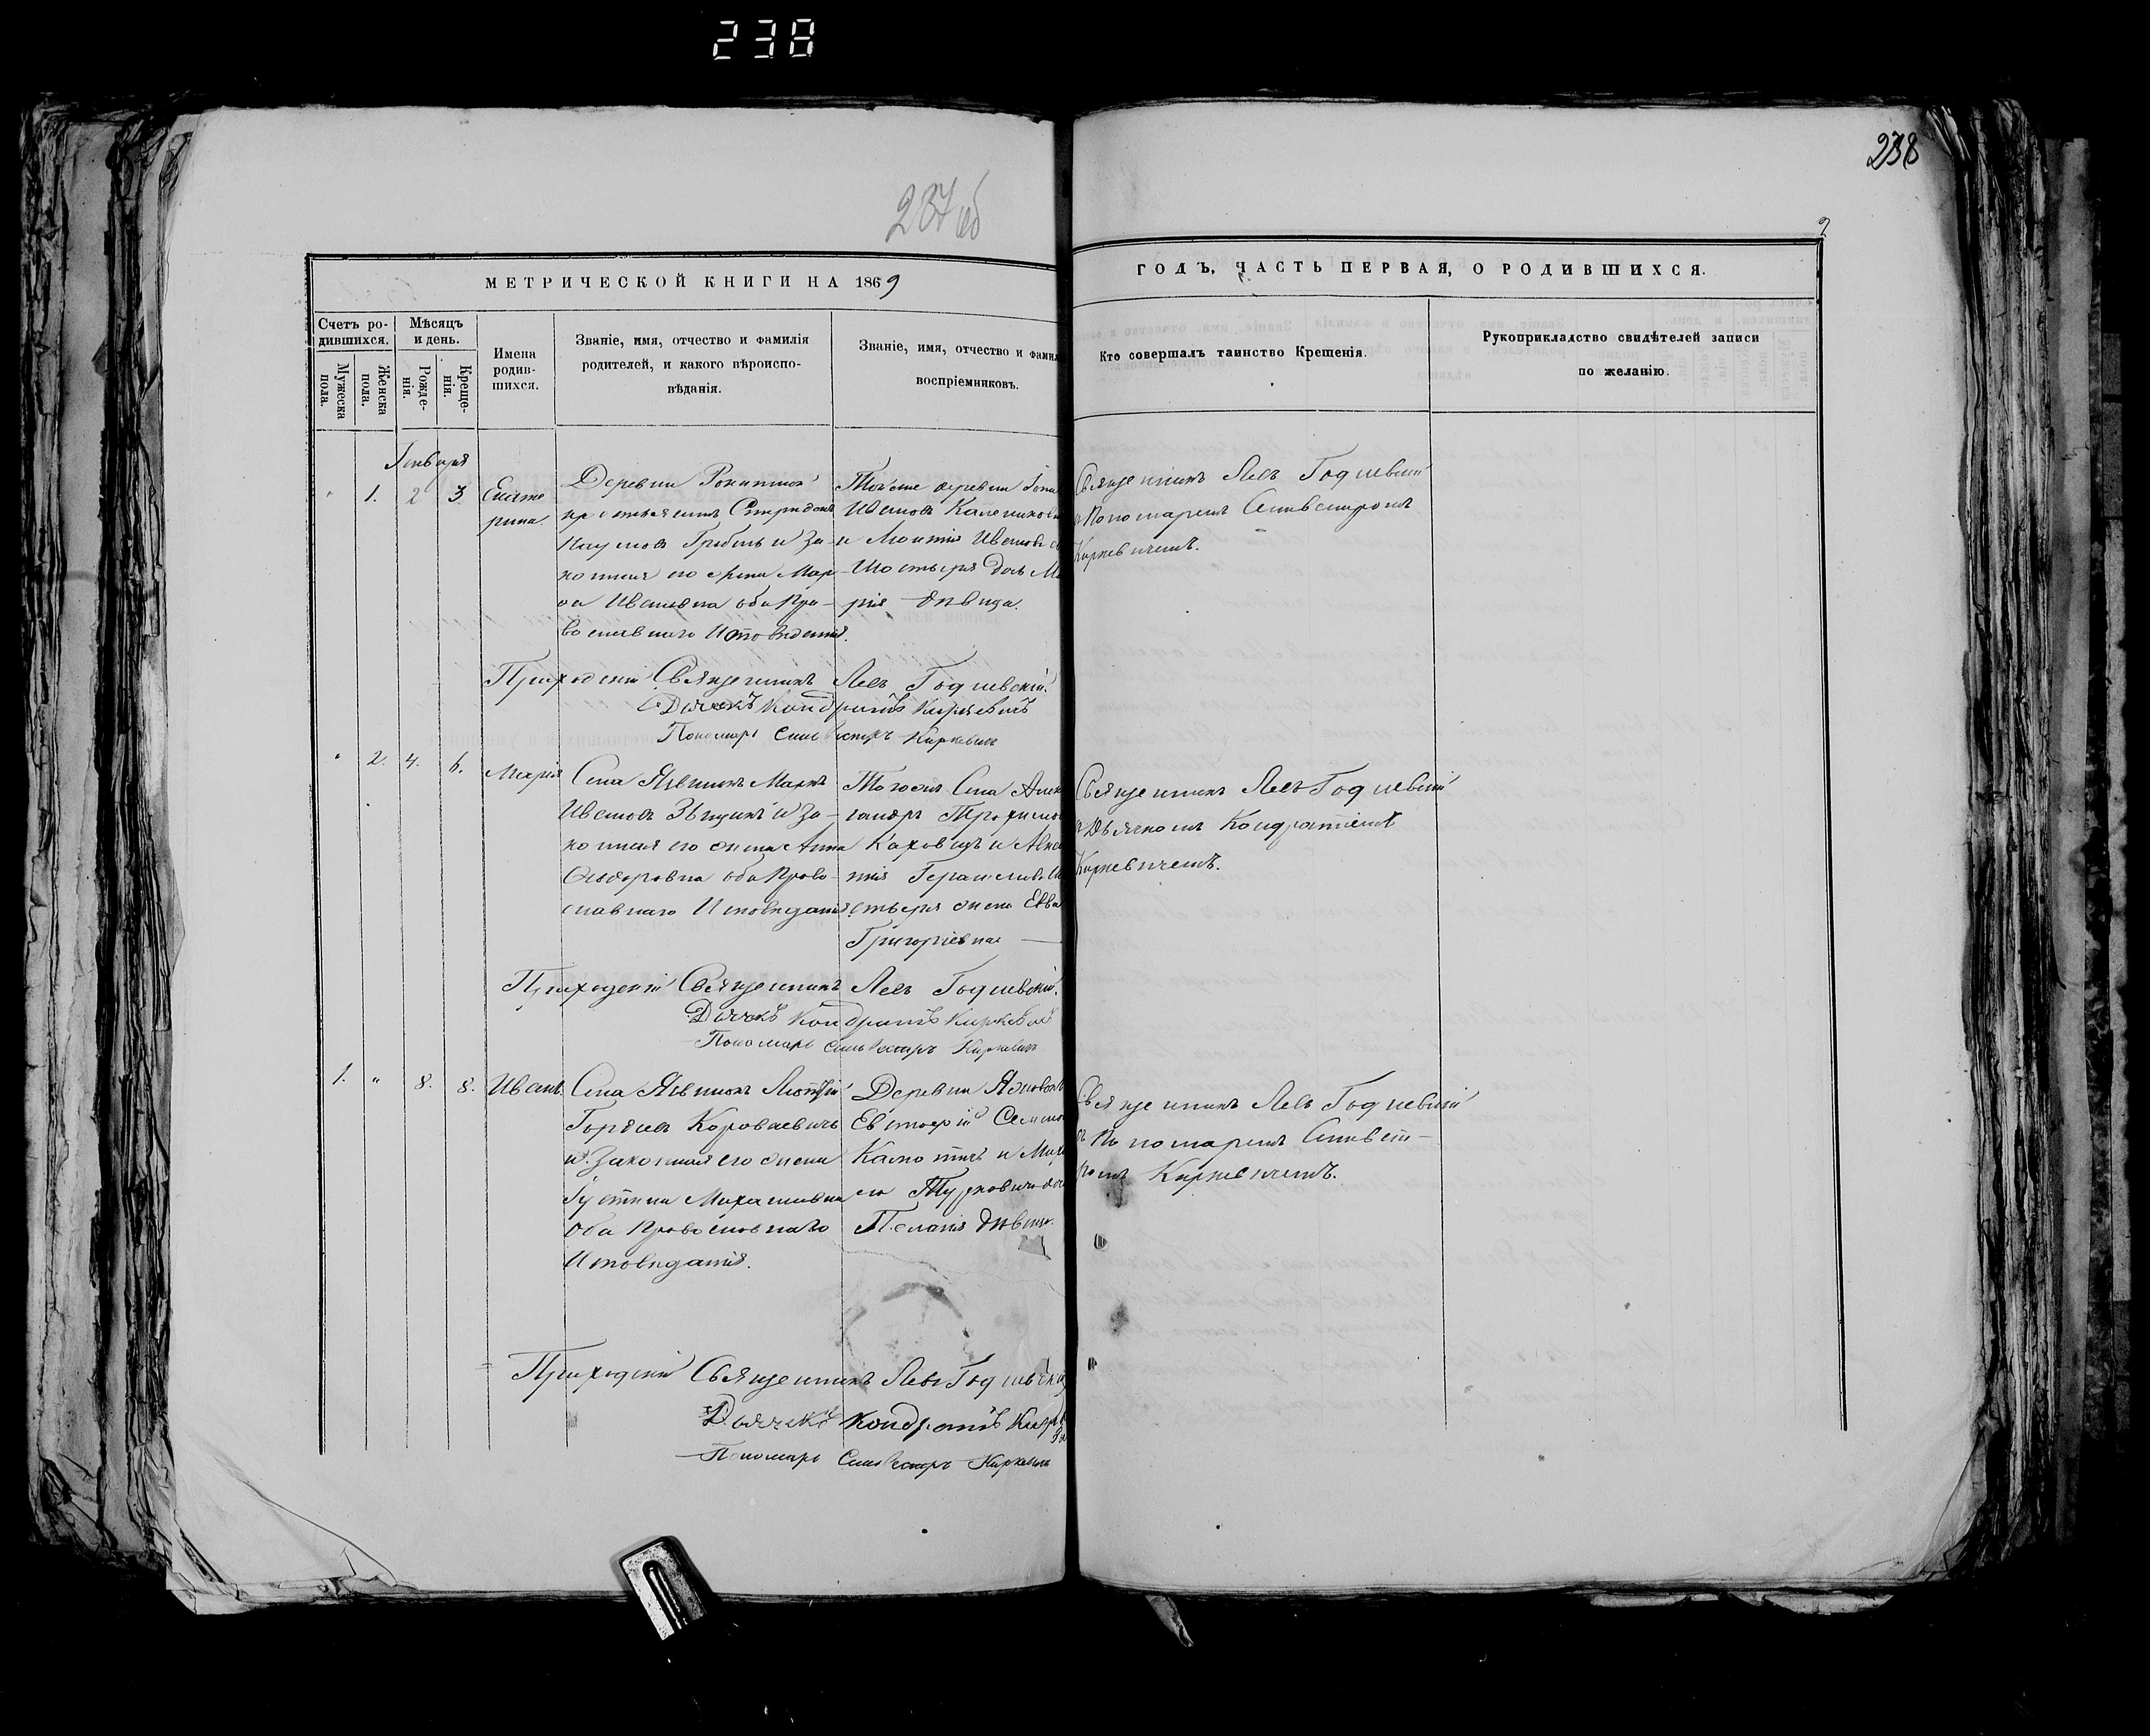 238
238
237об
2
МЕТРИЧЕСКОЙ КНИГИ НА 1869
ГОДЪ, ЧАСТЬ ПЕРВАЯ, О РОДИВШИХСЯ.
Счетъ ро-
дившихся.
Мужеска
пола.
Женска
пола.
Мѣсяцъ
и день.
Рожде-
нія.
Креще-
нія.
Имена
родив-
шихся.
Званіе, имя, отчество и фамилія
родителей, и какого вѣроиспо-
вѣданія.
Званіе, имя, отчество и фамил
воспріемниковъ.
Кто совершалъ таинство Крещенія.
Рукоприкладство свидѣтелей записи
по желанію.
Генваря
" 1. 2 3
Екате
рина.
Деревни
крестьянинъ Спиридонъ
Наумовъ и За-
конная его жена Мар
ѳа Ивановна оба Пра-
вославнаго Исповѣданія.
Тойже деревни
Ивановъ
и Ивановъ
дочь Ма
рія дѣвица.
Священникъ Левъ Годлевскій
съ Пономаремъ Сильвестромъ
Киркевичемъ.
Приходскій Священникъ Левъ Годлевскій.
Дьячекъ Кондратъ Киркевичъ
Пономарь Сильвестръ Киркевичъ
" 2. 4. 6. Марія
Села Маркъ
Ивановъ и За-
конная его жена Анна
Ѳедоровна оба Право-
славнаго Исповѣданія.
Тогожъ Села Алек
сандръ Трофимов
и
жена Евва
Григоріевна
Священникъ Левъ Годлевскій
съ Дьячкомъ Кондратіемъ
Киркевичемъ.
Приходскій Священникъ Левъ Годлевскій.
Дьячекъ Кондратъ Киркевичъ
Пономарь Сильвестръ Киркевичъ
1. " 8. 8. Иванъ
Села
Гордіевъ Короваевичъ
и Законная его жена
Іустина Михайловна
Оба Православнаго
Исповѣданія.
Деревни
Семено
и Миха
ла Турковича доч
Пелагія дѣвица.
Священникъ Левъ Годлевскій
съ Пономаремъ Сильвест-
ромъ Киркевичемъ.
Приходскій Священникъ Левъ Годлевскій
Дьячекъ Кондратъ
Пономарь Сильвестръ Киркевичъ